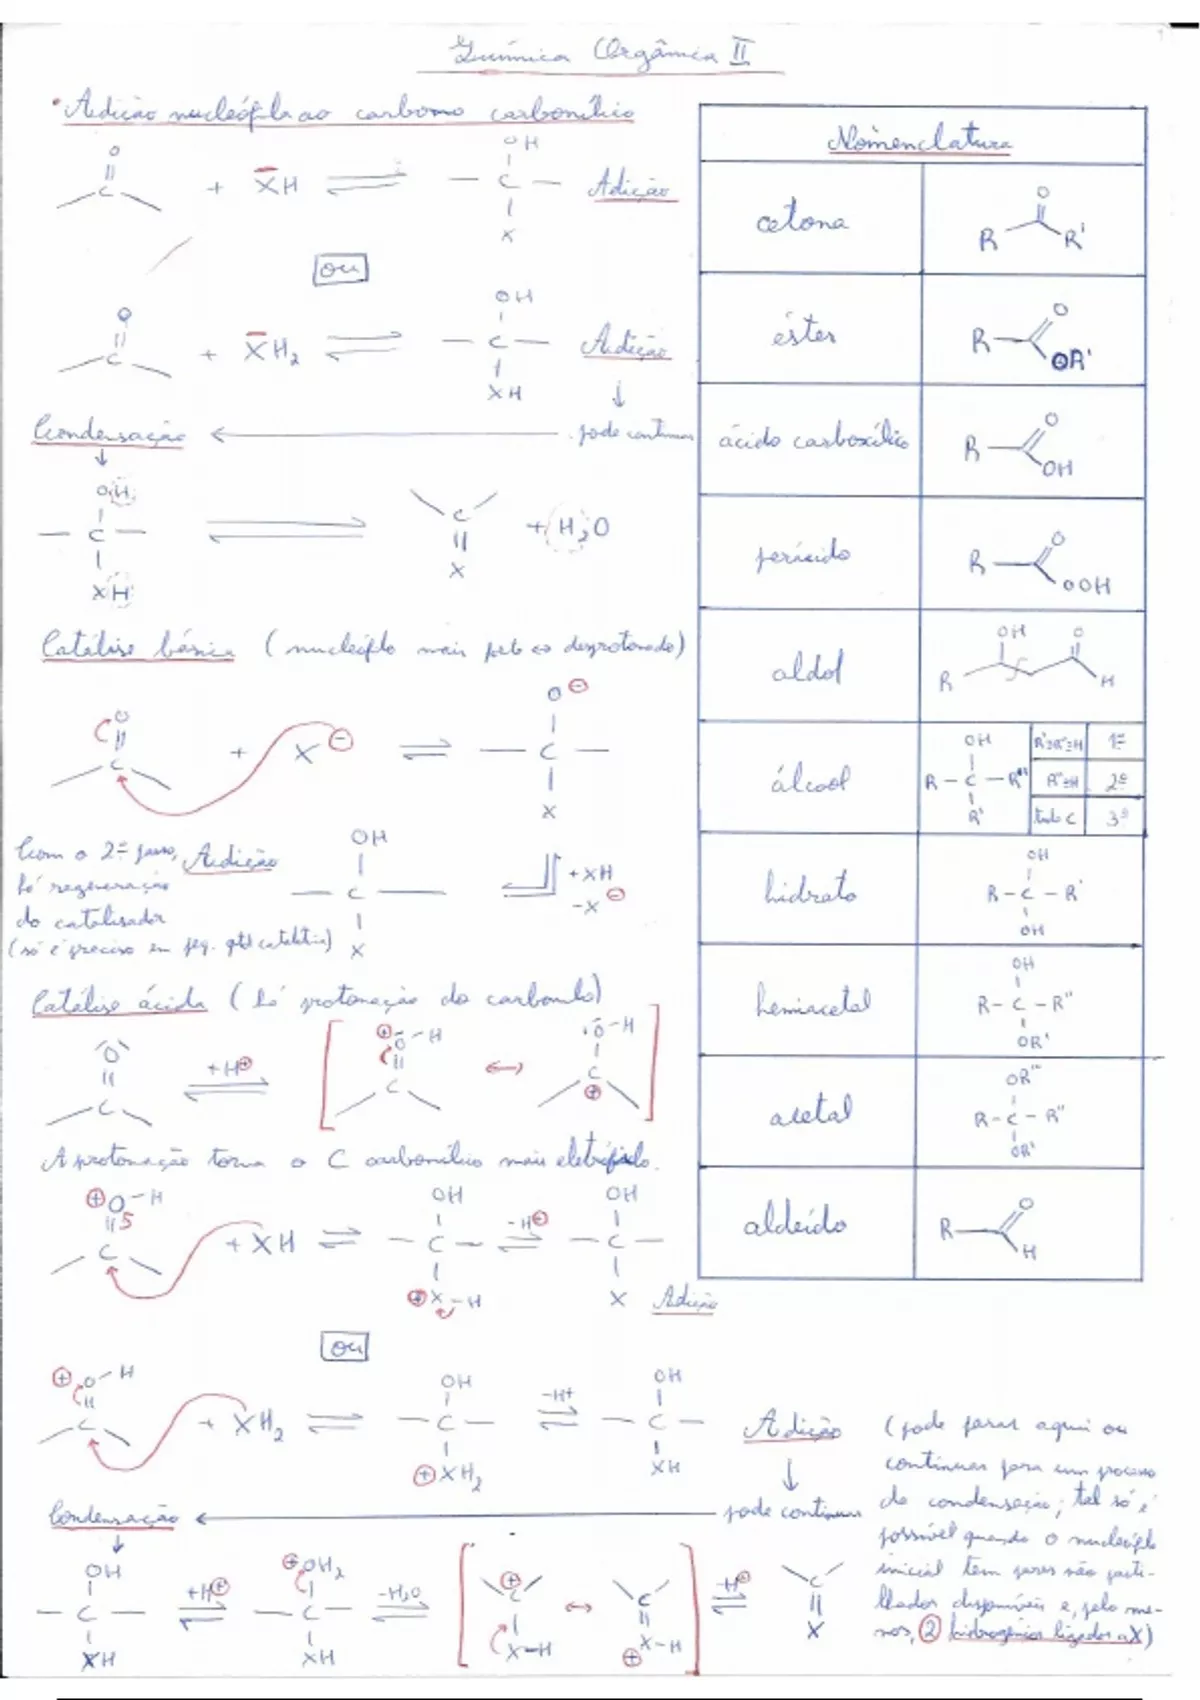 Química Orgânica II
• Adição nucleófila ao carbono carbonílico
O
C + XH ⇌ OH – C – X Adição
ou
O
C + XH₂ ⇌ OH – C – XH Adição
↓
Condensação ← pode continuar
↓
OH – C – XH ⇌ C = X + H₂O
Catálise básica (nucleófilo mais forte desprotonado)
O
C + X⊖ ⇌ O⊖ – C – X
Com o 2º passo, Adição
há regeneração
do catalisador
(só é preciso em peq. qtd catalítica)
OH – C – X
+XH
-X⊖
Catálise ácida (há protonação do carbonilo)
O
C +H⊕ ⇌ [ ⊕O-H C ↔ O-H C ⊕ ]
A protonação torna o C carbonílico mais eletrófilo.
⊕O-H
C + XH ⇌ OH – C – ⊕X-H ⇌ OH – C – X Adição
ou
⊕O-H
C + XH₂ ⇌ OH – C – ⊕XH₂ -H+ ⇌ OH – C – XH Adição
↓
Condensação ← pode continuar
↓
OH – C – XH +H⊕ ⇌ ⊕OH₂ – C – XH -H₂O ⇌ [ ⊕ C X-H ↔ C ⊕X-H ] -H⊕ ⇌ C X
(pode parar aqui ou
continuar para um processo
de condensação; tal só é
possível quando o nucleófilo
inicial tem pares não parti-
lhados disponíveis e, pelo me-
nos, 2 hidrogénios ligados a X)
Nomenclatura
cetona R O R'
éster R O OR'
ácido carboxílico R O OH
perácido R O OOH
aldol OH O R H
álcool OH R – C – R'' R'
R'=R''=H 1º
R''=H 2º
tudo C 3º
hidrato OH R – C – R' OH
hemiacetal OH R – C – R'' OR'
acetal OR''' R – C – R'' OR'
aldeído R O H